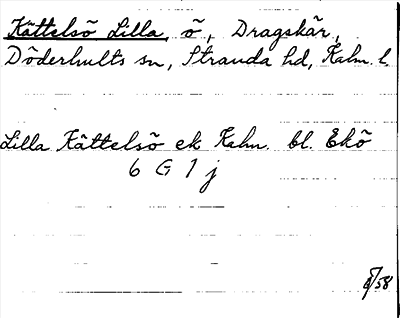 Kättelsö Lilla, ö, Dragskär,
Döderhults sn, Stranda hd, Kalm. l.
Lilla Kättelsö ek Kalm. bl. Ekö
6 G 1 j